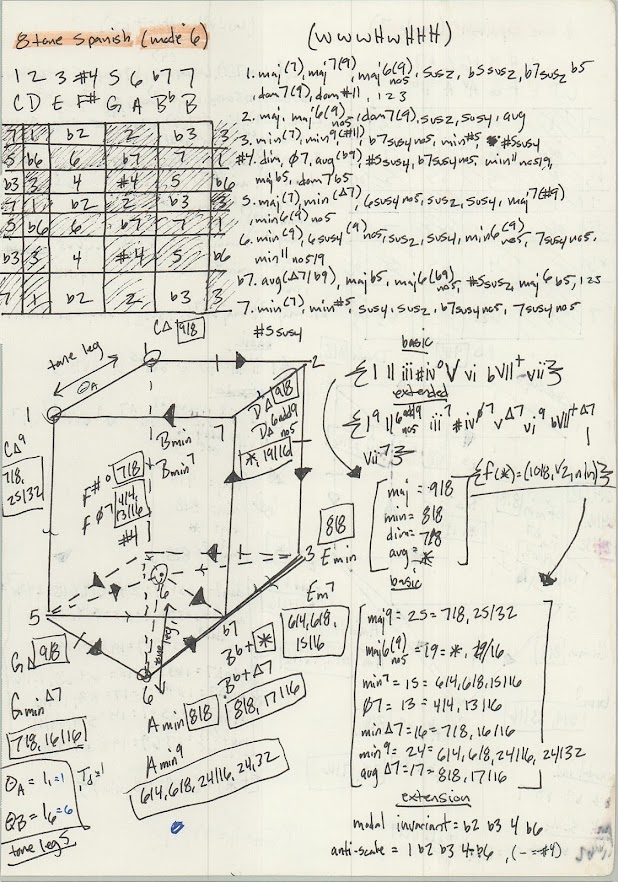 8 tone Spanish (mode 6)
(WWWHWHHH)
1 2 3 #4 5 6 b7 7
C D E F# G A Bb B
7 1 b2 2 b3 3
5 b6 6 b7 7 1
b3 3 4 #4 5 b6
7 1 b2 2 b3 3
5 b6 6 b7 7 1
b3 3 4 #4 5 b6
7 1 b2 2 b3 3
1. maj(7), maj7(9), maj6(9)no5, sus2, b5sus2, b7sus2b5
, dom7(9), dom#11, 1 2 3
2. maj, maj6(9)no5, dom7(9), sus2, sus4, aug
3. min(7), min9(#11), b7sus4no5, min#5 #5sus4
#4. dim, ø7, aug(b9), #5sus4, b7sus4no5, min11no5/9,
majb5, dom7b5
5. maj(7), min(Δ7), 6sus4no5, sus2, sus4, maj7(#9)
, min6(9)no5
6. min(9), 6sus4(9)no5, sus2, sus4, min6(9)no5, 7sus4no5,
min11no5/9
b7. aug(Δ7/b9), majb5, maj6(b9)no5, #5sus2, maj6b5, 123
7. min(7), min#5, sus4, sus2, b7sus4no5, 7sus4no5
#5sus4
CΔ 9/8
tone leg
ΘA
1
1
2
7
1
DΔ 9/8
DΔ6add9no5
*, 19/16
Bmin
Bmin7
CΔ9
7/8, 25/32
F#o 7/8
Fø7 4/4, 13/16
#4
8/8
3
Emin
Em7
6/4, 6/8, 15/16
5
6
tone leg
6
b7
Bb+ *
Bb+Δ7
8/8, 17/16
GΔ 9/8
GminΔ7
7/8, 16/16
Amin 8/8
Amin9
6/4, 6/8, 24/16, 24,32
ΘA = 1, =1
ΘB = 16 =6
tone legs
basic
{I II iii #ivo V vi bVII+ vii}
extended
{I9 II6add9no5 iii7 #ivø7 vΔ7 vi9 bVII+Δ7
vii7}
{f(*)=(10/8, V2, n/n)}
maj = 9/8
min = 8/8
dim = 7/8
aug = *
basic
maj9 = 25 = 7/8, 25/32
maj6(9)no5 = 19 = *, 19/16
min7 = 15 = 6/4, 6/8, 15/16
ø7 = 13 = 4/4, 13/16
minΔ7 = 16 = 7/8, 16/16
min9 = 24 = 6/4, 6/8, 24/16, 24/32
augΔ7 = 17 = 8/8, 17/16
extension
modal invariant = b2 b3 4 b6
anti-scale = 1 b2 b3 4 b6, (-=#4)